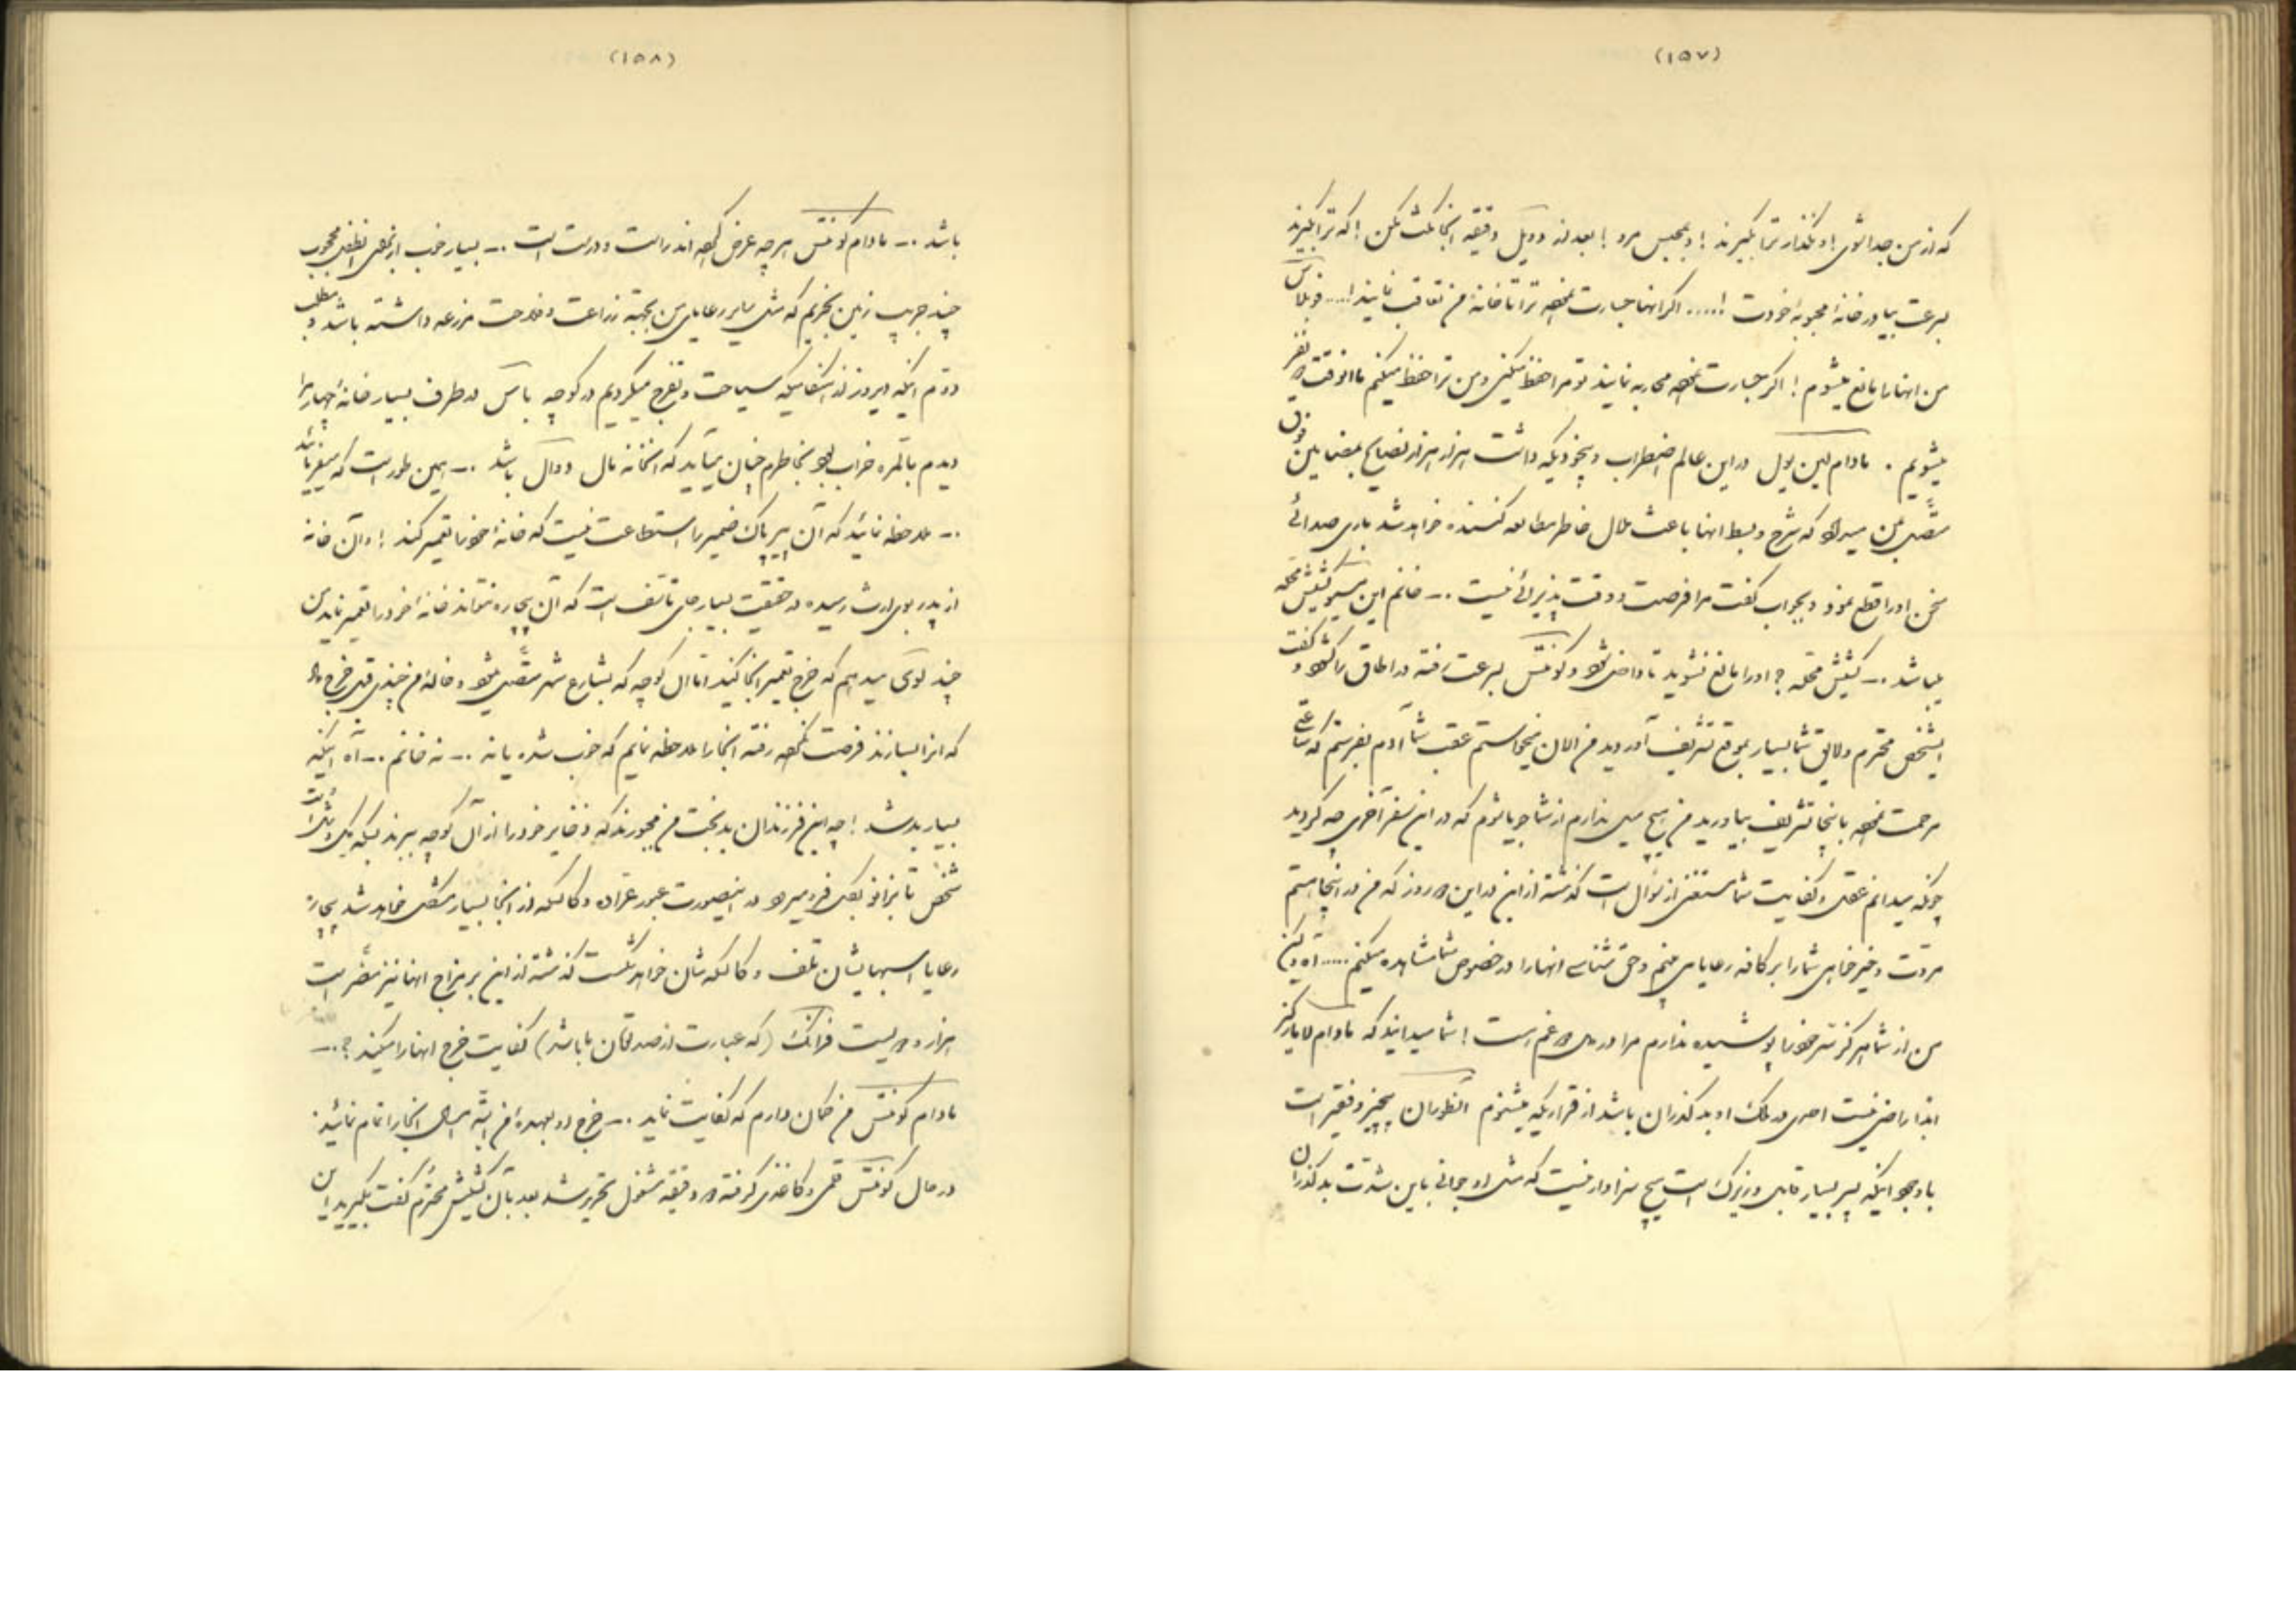 (۱۵۷)
که از من جدا شوی! و نگذار ترا بگیرند! و بمحبس مرو! بعد از دوئل دقیقهٔ آنجا مکث مکن! که ترا بگیرند
بسرعت بیا در خانهٔ محبوبهٔ خودت!..... اگر آنها جسارت نموده ترا تا خانهٔ من تعاقب نمایند!....
من آنها را مانع میشوم! اگر جسارت نموده محاربه نمایند تو مرا حفظ میکنی و من ترا حفظ میکنم ما آنوقت نفر
میشویم . مادام لین پول در این عالم اضطراب و بیخودیکه داشت هزار هزار نصایح بمضامین فوق
متصل بمن میداد که شرح و بسط آنها باعث ملال خاطر مطالعه کننده خواهد شد باری صدائی
سخن او را قطع نمود و بجواب گفت مرا فرصت و وقت پذیرائی نیست .ـ خانم این مسیو کشیش محله
میباشد .ـ کشیش محله؟ او را مانع نشوید تا داخل شود و کونتس بسرعت رفته در اطاق را گشود و گفت
ایشخص محترم و لایق شما بسیار بموقع تشریف آوردید من الان میخواستم عقب شما آدم بفرستم که ساعتی
مرحمت نموده باینجا تشریف بیاورید من هیچ میل ندارم از شما جویا شوم که در این سفر آخری چه کردید
چونکه میدانم عقل و کفایت شما مستغنی از سؤال است گذشته از این در این روز که من در اینجا هستم
مروت و خیرخواهی شما را بر کافه رعایا میبینم و حق شناسی آنها را در خصوص شما مشاهده میکنم ..... آه ولکن
من از شما هرگز سر خود را پوشیده ندارم مرا در دل غم است! شما میدانید که مادام لا مارکیز
ابدا راضی نیست احدی در ملک او بد گذران باشد از قراریکه میشنوم بیچیز و فقیر است
با وجود اینکه پیر بسیار قابل و زیرک است هیچ سزاوار نیست که مثل او جوانی باین شدت بد گذران
(۱۵۸)
باشد .ـ مادام کونتس هر چه عرض کرده‌اند راست و درست است .ـ بسیار خوب از برای محبوب
چند جریب زمین بخریم که مثل سایر رعایای من بجهت زراعت و فلاحت مزرعه داشته باشد و مطلب
دوم اینکه دیروز در اثنائیکه سیاحت و تفرج میکردیم در کوچه باس در طرف یسار خانهٔ را
دیدم بالمره خراب بود بخاطرم چنان میآید که آنخانه مال دوآل باشد .ـ همین طور است که میفرمائید
.ـ ملاحظه نمائید که آن پیر پاک ضمیر را استطاعت نیست که خانهٔ خود را تعمیر کند! و آن خانه
از پدر بوی ارث رسیده در حقیقت بسیار جای تأسف است که آن بیچاره نتواند خانهٔ خود را تعمیر نماید من
چند لوئی میدهم که خرج تعمیر آنجا کنید اما آن کوچه که بشارع شهر متصل میشود و خانهٔ من چندی قبل خرج داد
که آنرا بسازند فرصت نکرده رفته آنجا را ملاحظه نمایم که خوب شده یا نه .ـ نه خانم .ـ آه اینکه
بسیار بد شد! چه این فرزندان بدبخت من مجبورند که ذخایر خود را از آن کوچه ببرند
شخص تا بزانو بگل فرو میرود در اینصورت عبور عراده و کالسکه از آنجا بسیار مشکل خواهد شد بیچاره
رعایا اسبهایشان تلف و کالسکه شان خواهد شکست گذشته از این بر مزاج آنها نیز مضر است
هزار و دویست فرانک (که عبارت از صد تومان ما باشد) کفایت خرج آنها را میکند؟.ـ
مادام کونتس من گمان دارم که کفایت نماید .ـ خرج او بعهدهٔ من البته امسال آنجا را تمام نمائید.
در حال کونتس قلمی و کاغذی گرفته دقیقه مشغول تحریر شد بعد بآن کشیش محترم گفت بگیرید این